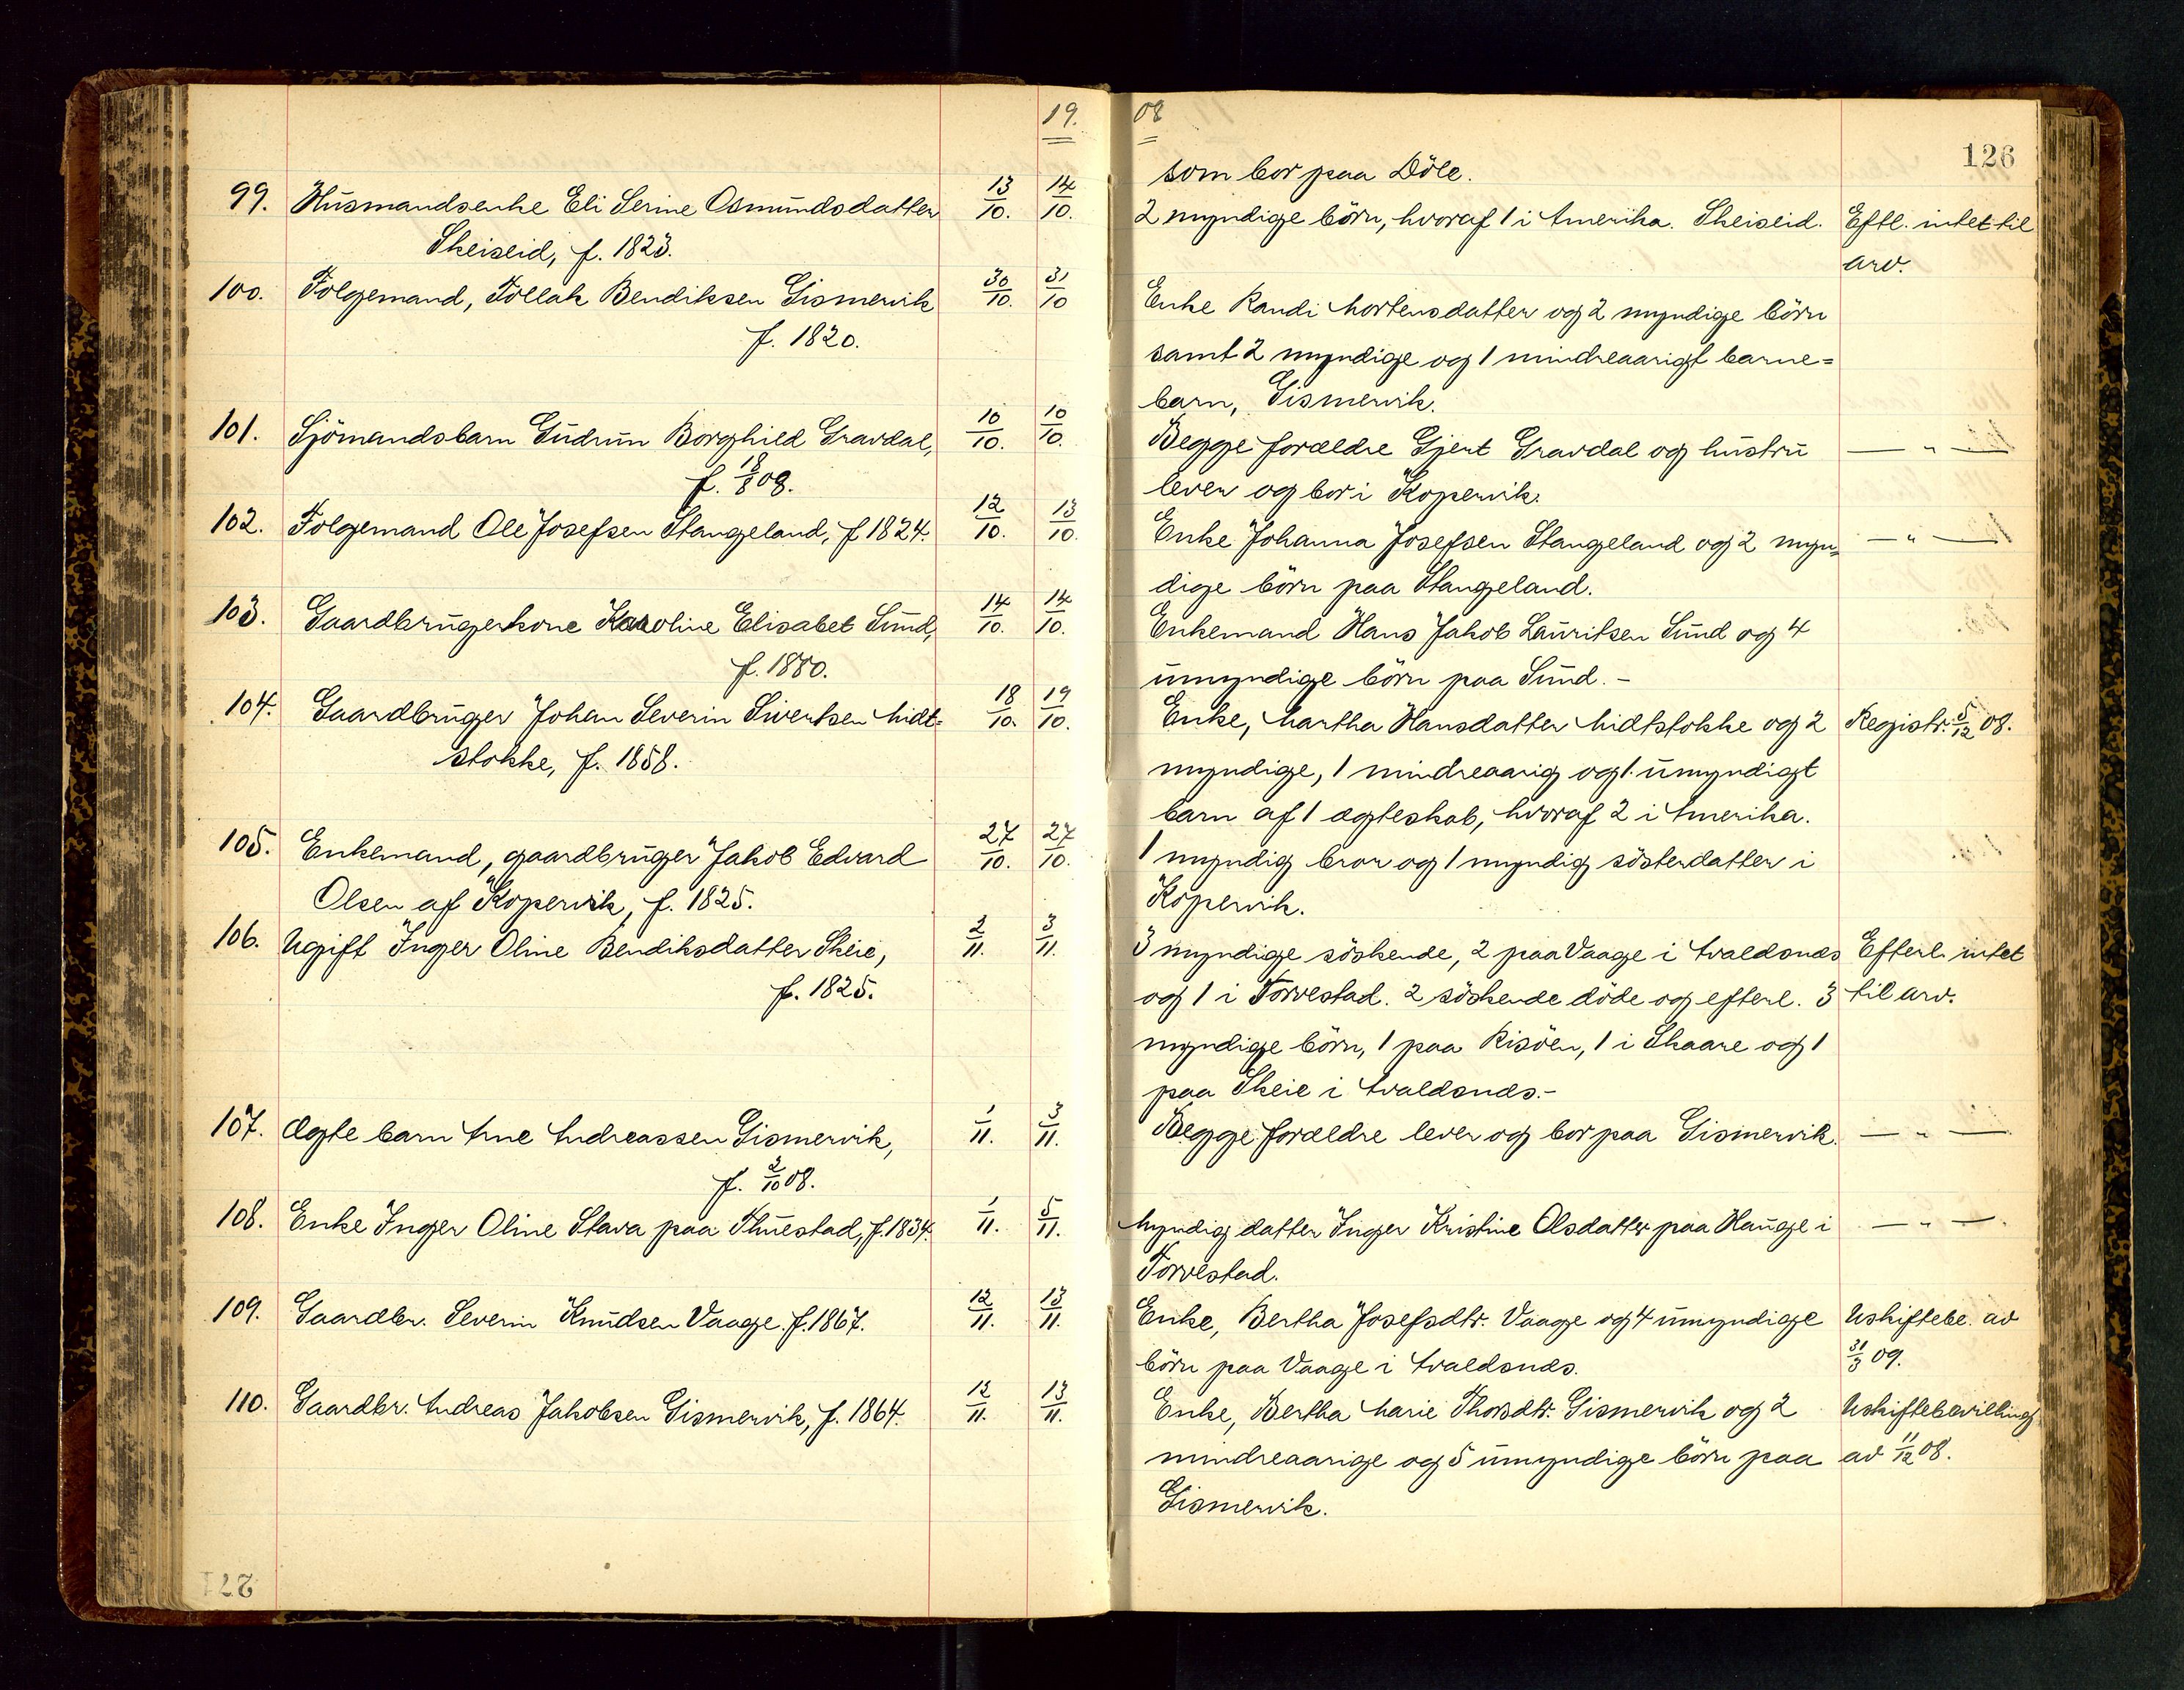 19.
99. Husmandsenke Eli Serine Osmundsdatter 13/10. 14/10.
Skeiseid, f. 1823.
100. Folgemand, Tollak Bendiksen Gismervik 30/10. 31/10
f. 1820.
101. Sjömandsbarn Gudrun Borghild Gravdal, 10/10. 10/10.
f. 18/8 08.
102. Folgemand Ole Josefsen Stangeland, f 1824. 12/10. 13/10.
103. Gaardbrugerkone Karoline Elisabet Sund, 14/10. 14/10.
f. 1880.
104. Gaardbruger Johan Severin Sivertsen Midt- 18/10. 19/10.
stokke, f. 1858.
105. Enkemand, gaardbruger Jakob Edvard 27/10. 27/10.
Olsen af Kopervik, f. 1825.
106. Ugift Inger Oline Bendiksdatter Skeie, 2/11. 3/11.
f. 1825.
107. Ægte barn Arne Andreassen Gismervik, 1/11. 3/11.
f. 2/10 08.
108. Enke Inger Oline Stava paa Thuestad, f. 1834. 1/11. 5/11.
109. Gaardbr. Severin Knudsen Vaage. f. 1867. 12/11. 13/11.
110. Gaardbr. Andreas Jakobsen Gismervik, f. 1864. 12/11. 13/11.
08
126
som bor paa Döle.
2 myndige börn, hvoraf 1 i Amerika. Skeiseid. Eftl. intet til
arv.
Enke Randi Mortensdatter og 2 myndige börn
samt 2 myndige og 1 mindreaarigt barne=
barn, Gismervik.
Begge forældre Gjert Gravdal og hustru — " —
lever og bor i Kopervik.
Enke Johanna Josefsen Stangeland og 2 myn= — " —
dige börn paa Stangeland.
Enkemand Hans Jakob Lauritsen Sund og 4
umyndige börn paa Sund. -
Enke, Martha Hansdatter Midtstokke og 2 Registr. 5/12 08.
myndige, 1 mindreaarig og 1 umyndigt
barn af 1 ægteskab, hvoraf 2 i Amerika.
1 myndig bror og 1 myndig sösterdatter i
Kopervik.
3 myndige söskende, 2 paa Vaage i Avaldsnes Efterl. intet
og 1 i Torvestad. 2 söskende döde og efterl. 3 til arv.
myndige börn, 1 paa Risöen, 1 i Skaare og 1
paa Skeie i Avaldsnes.-
Begge forældre lever og bor paa Gismervik. — " —
Myndig datter Inger Kristine Olsdatter paa Hauge i — " —.
Torvestad.
Enke, Bertha Josefsdtr. Vaage og 4 umyndige Uskiftebe. av
börn paa Vaage i Avaldsnes. 31/3 09.
Enke, Bertha Marie Thorsdtr. Gismervik og 2 Uskiftebevilling
mindreaarige og 5 umyndige börn paa av 11/12 08.
Gismervik.